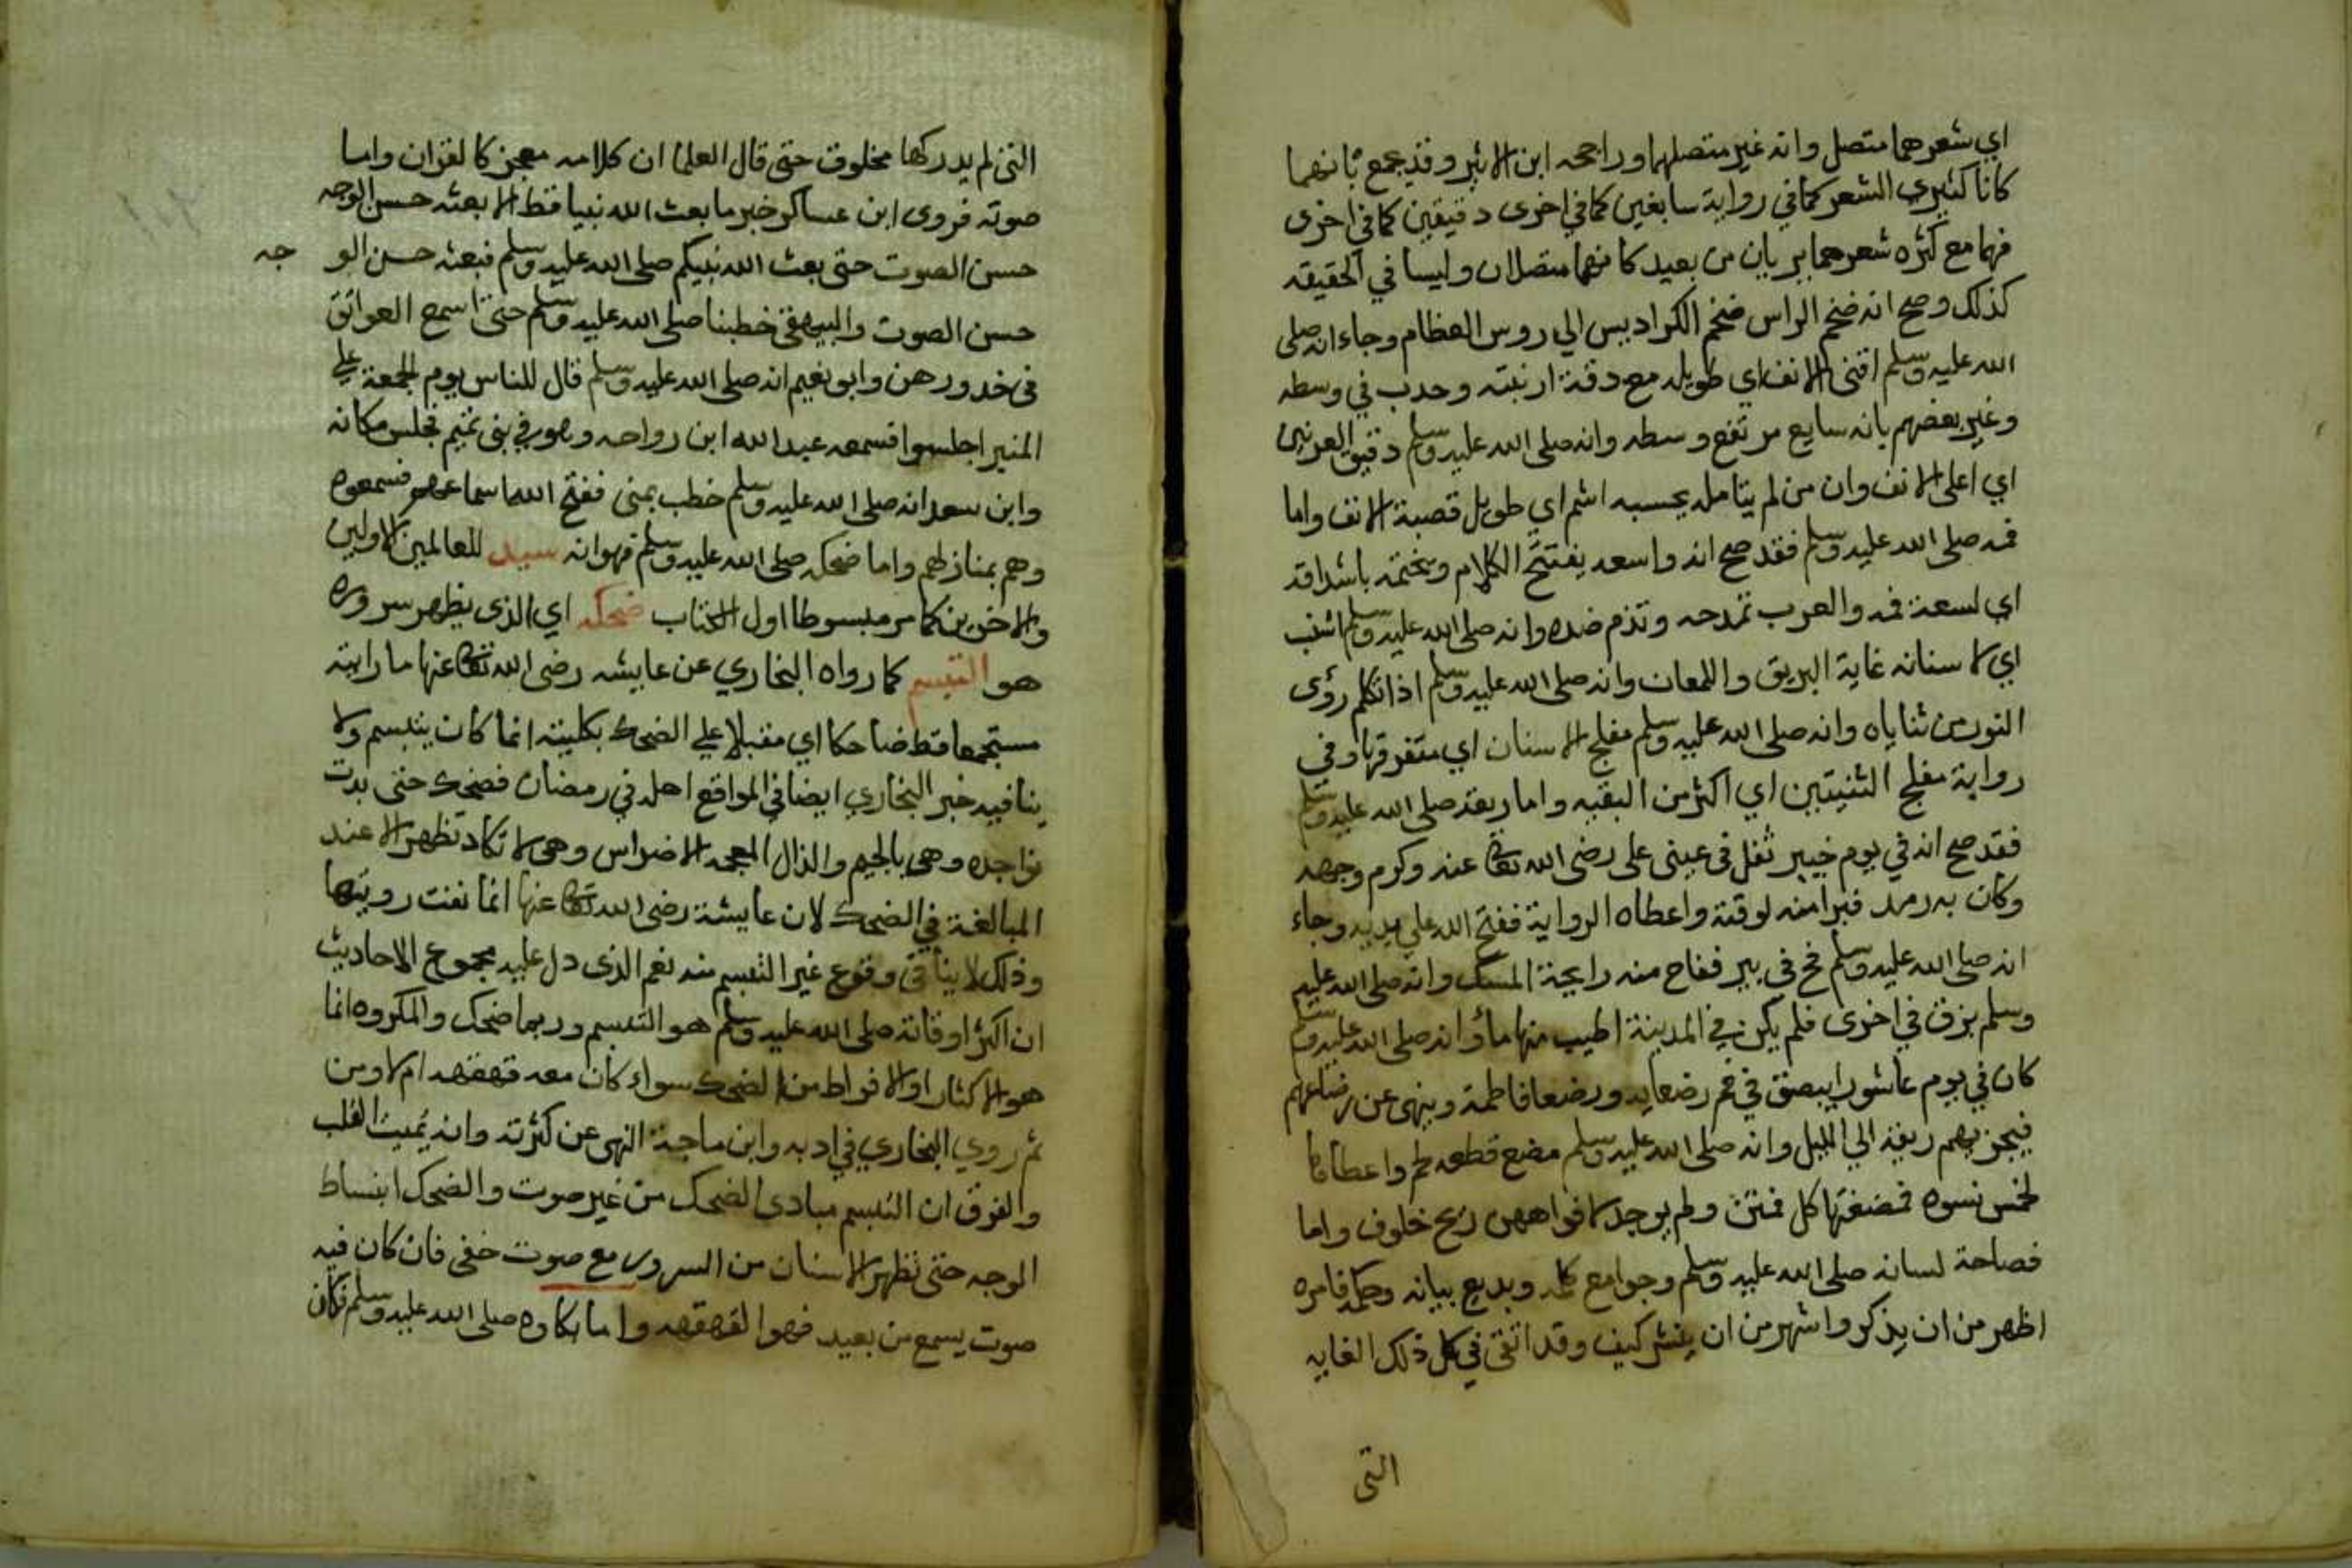 اي شعرهما متصل وانه غير متصلهما وراجحه ابن الاثير وقد يجمع بانهما
كانا كثيري الشعر كما في رواية سابغين كما في اخرى دقيقين كما في اخرى
فهما مع كثره شعرهما يريان من بعيد كانهما متصلان وليسا في الحقيقه
كذلك وصح انه ضخم الراس ضخم الكراديس الي روس العظام وجاء انه صلى
الله عليه وسلم اقنى الانف اي طويله مع دقة ارنبته وحدب في وسطه
وغير بعضهم بانه سايع مرتفع وسطه وانه صلى الله عليه وسلم دقيق العرنين
اي اعلى الانف وان من لم يتامله يحسبه اشم اي طويل قصبة الانف واما
فمه صلى الله عليه وسلم فقد صح انه واسعه يفتتح الكلام ويختمه باشداقه
اي لسعة فمه والعرب تمدحه وتذم ضده وانه صلى الله عليه وسلم اشنب
اي لاسنانه غاية البريق واللمعان وانه صلى الله عليه وسلم اذا تكلم رؤى
النور من ثناياه وانه صلى الله عليه وسلم مفلج الاسنان اي متفرقها وفى
رواية مفلج الثنيتين اي اكثر من البقيه واما ريقه صلى الله عليه وسلم
فقد صح انه في يوم خيبر ثفل فى عينى على رضى الله تعا عنه وكرم وجهه
وكان به رمد فبرا منه لوقته واعطاه الرواية ففتح الله علي يديه وجاء
انه صلى الله عليه وسلم مج فى بير ففاح منه رايحة المسك وانه صلى الله عليه
وسلم بزق في اخرى فلم يكن في المدينة اطيب منها مأ وانه صلى الله عليه وسلم
كان في يوم عاشورا يبصق في فم رضعايه ورضعا فاطمة وينهى عن رضاعهم
فيجزيهم ريقه الي الليل وانه صلى الله عليه وسلم مضع قطعه لحم واعطاها
لخمس نسوه فمضغتها كل فمتن ولم يوجد لافواههن ريح خلوف واما
فصاحة لسانه صلى الله عليه وسلم وجوامع كلمه وبديع بيانه وحكمه فامره
اظهر من ان يذكر واشهر من ان ينشر كيف وقد اتقى في كل ذلك الغايه
التى
التى لم يدركها مخلوق حتى قال العلما ان كلامه معجز كالقران واما
صوته فروى ابن عساكر خبر ما بعث الله نبيا قط الا بعثه حسن الوجه
حسن الصوت حتى بعث الله نبيكم صلى الله عليه وسلم فبعثه حسن الو جه
حسن الصوت والبيهقى خطبنا صلى الله عليه وسلم حتى اسمع العواتق
فى خدورهن وابو نعيم انه صلى الله عليه وسلم قال للناس يوم الجمعة علي
المنبر اجلسوا فسمعه عبد الله ابن رواحه وهو في بنى تميم فجلس مكانه
وابن سعد انه صلى الله عليه وسلم خطب بمنى ففتح الله اسماعهم فسمعوه
وهم بمنازلهم واما ضحكه صلى الله عليه وسلم فهو انه سيد للعالمين الاولين
والاخرين كما مر مبسوطا اول الكتاب ضحكه اي الذى يظهر سروره
هو التبسم كما رواه البخاري عن عايشه رضى الله تعا عنها ما رايته
مستجمعا قط ضاحكا اي مقبلا علي الضحك بكليته انما كان يتبسم ولا
ينافيه خبر البخاري ايضا في المواقع اهله في رمضان فضحك حتى بدت
نواجده وهى بالجيم والذال المعجمه الاضراس وهى لا تكاد تظهر الا عند
المبالغة في الضحك لان عايشة رضى الله تعا عنها انما نفت رويتها
وذلك لا ينافى وقوع غير التبسم منه نعم الذى دل عليه مجموع الاحاديث
ان اكثر اوقاته صلى الله عليه وسلم هو التبسم وربما ضحك والمكروه انما
هو الاكثار او الافراط من الضحك سواء كان معه قهقهه ام لا ومن
ثم روي البخاري في ادبه وابن ماجة النهى عن كثرته وانه يميت القلب
والفرق ان التبسم مبادى الضحك من غير صوت والضحك ابنساط
الوجه حتى تظهر الاسنان من السرور مع صوت خفى فان كان فيه
صوت يسمع من بعيد فهوا لقهقهه واما بكاوه صلى الله عليه وسلم فكان